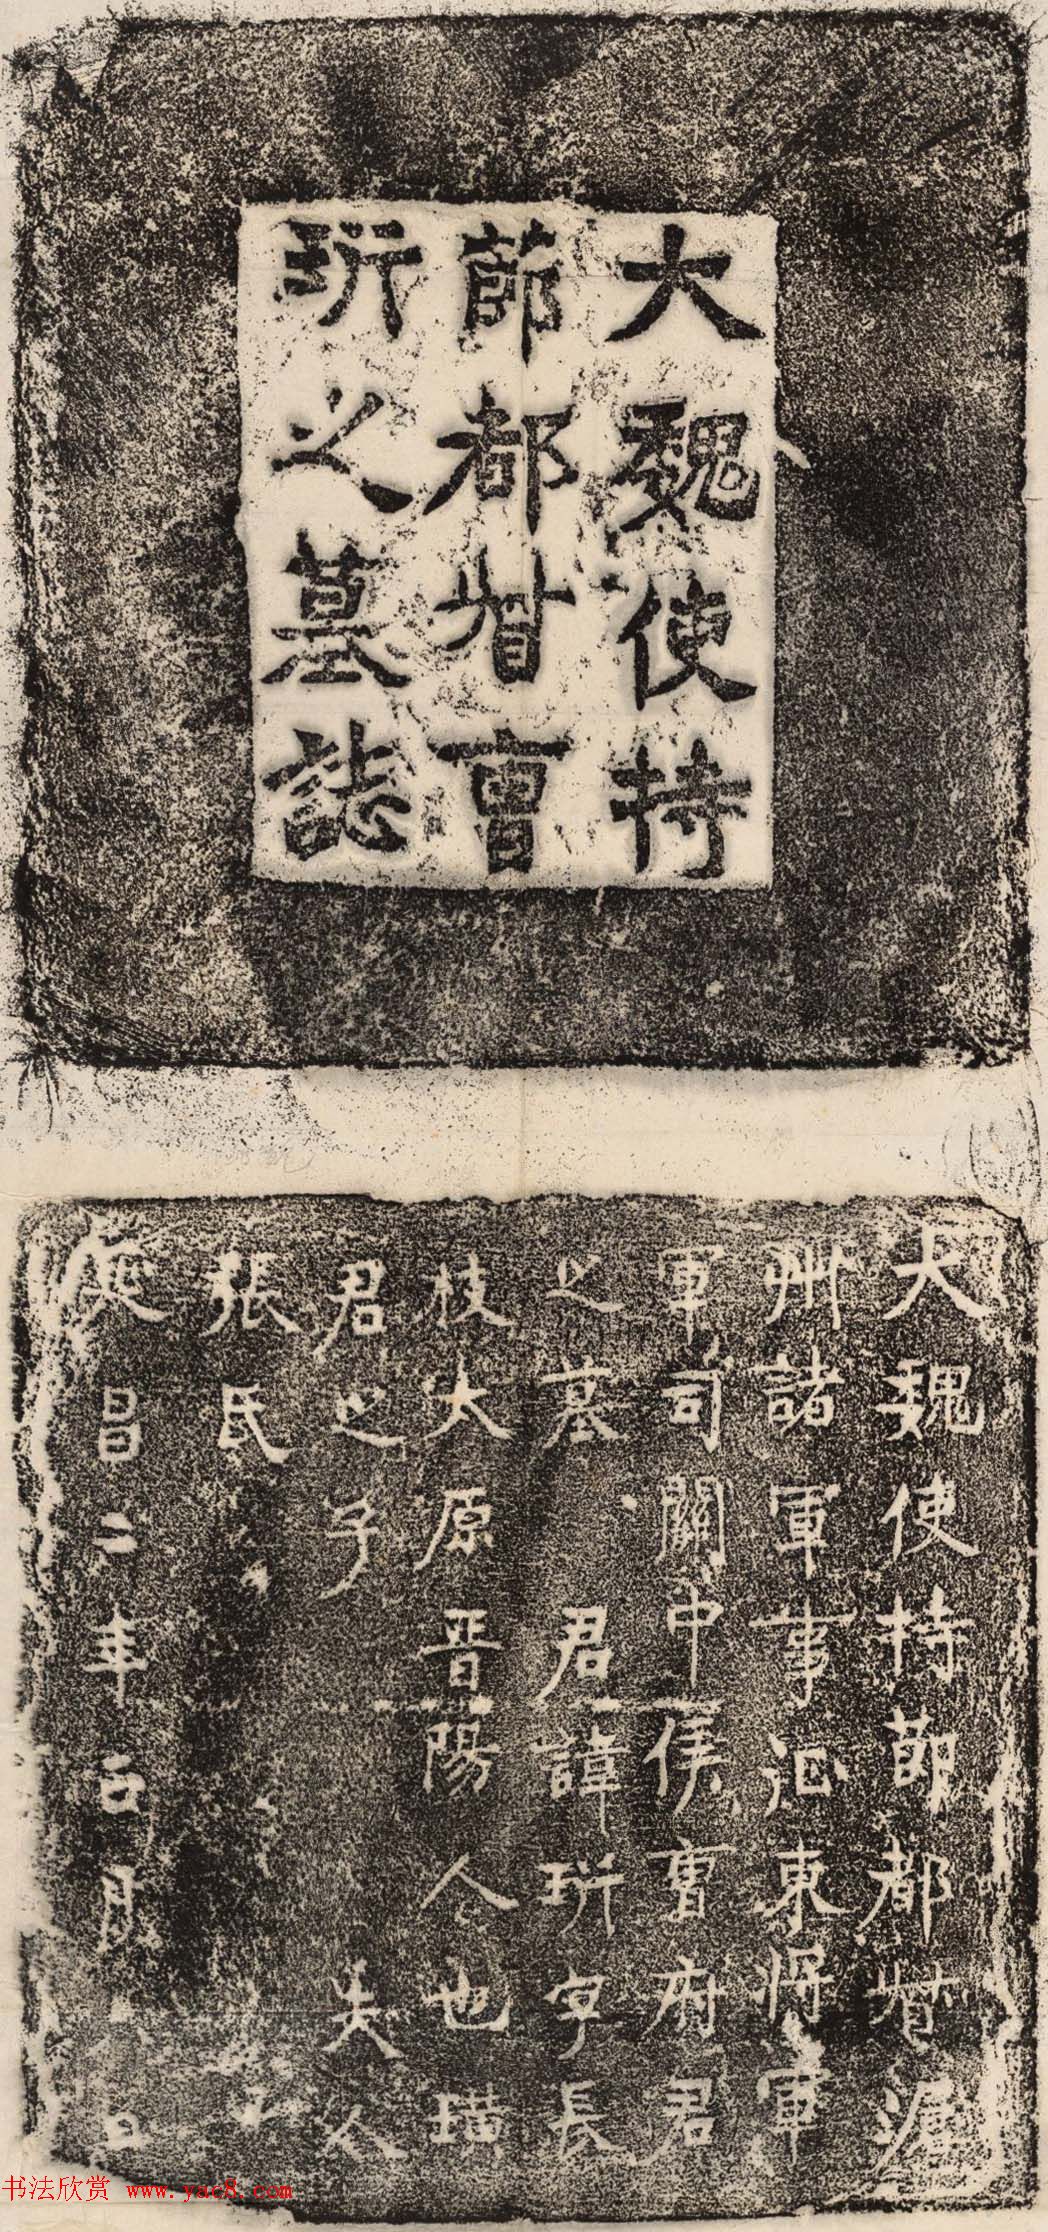 大魏使持
節都督曹
之墓誌
大魏使持節都督
州諸軍事征東將軍
軍司關中侯曹府君
之墓 君諱 字長
枝太原晉陽人也璜
君之子 夫人
張氏
延昌二年 月 日
书法欣赏 www.yac8.com